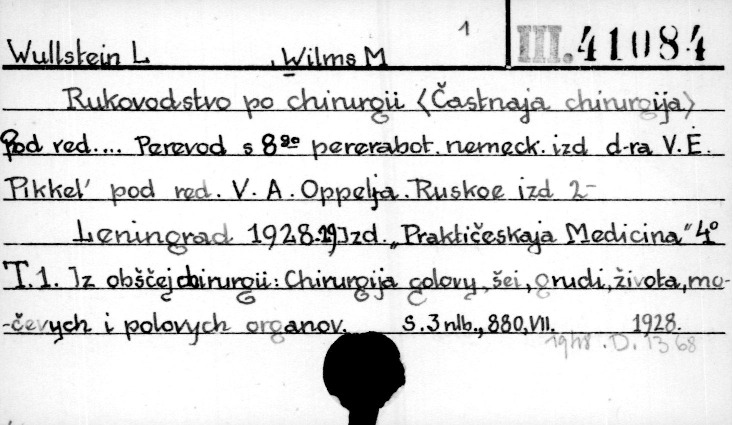 1
Wullstein L , Wilms M III.41084
Rukovodstvo po chirurgii <Častnaja chirurgija>
Pod red.... Perevod s 8go pererabot. nemeck. izd d-ra V.E.
Pikkel' pod red. V. A. Oppelja. Ruskoe izd 2-
Leningrad 1928-29 Izd. „Praktičeskaja Medicina" 4°
T.1. Iz obščej chirurgii: Chirurgija golovy, šei, grudi, života, mo-
-čevych i polovych organov. S. 3 nlb., 880, VII. 1928.
1948.D.1368